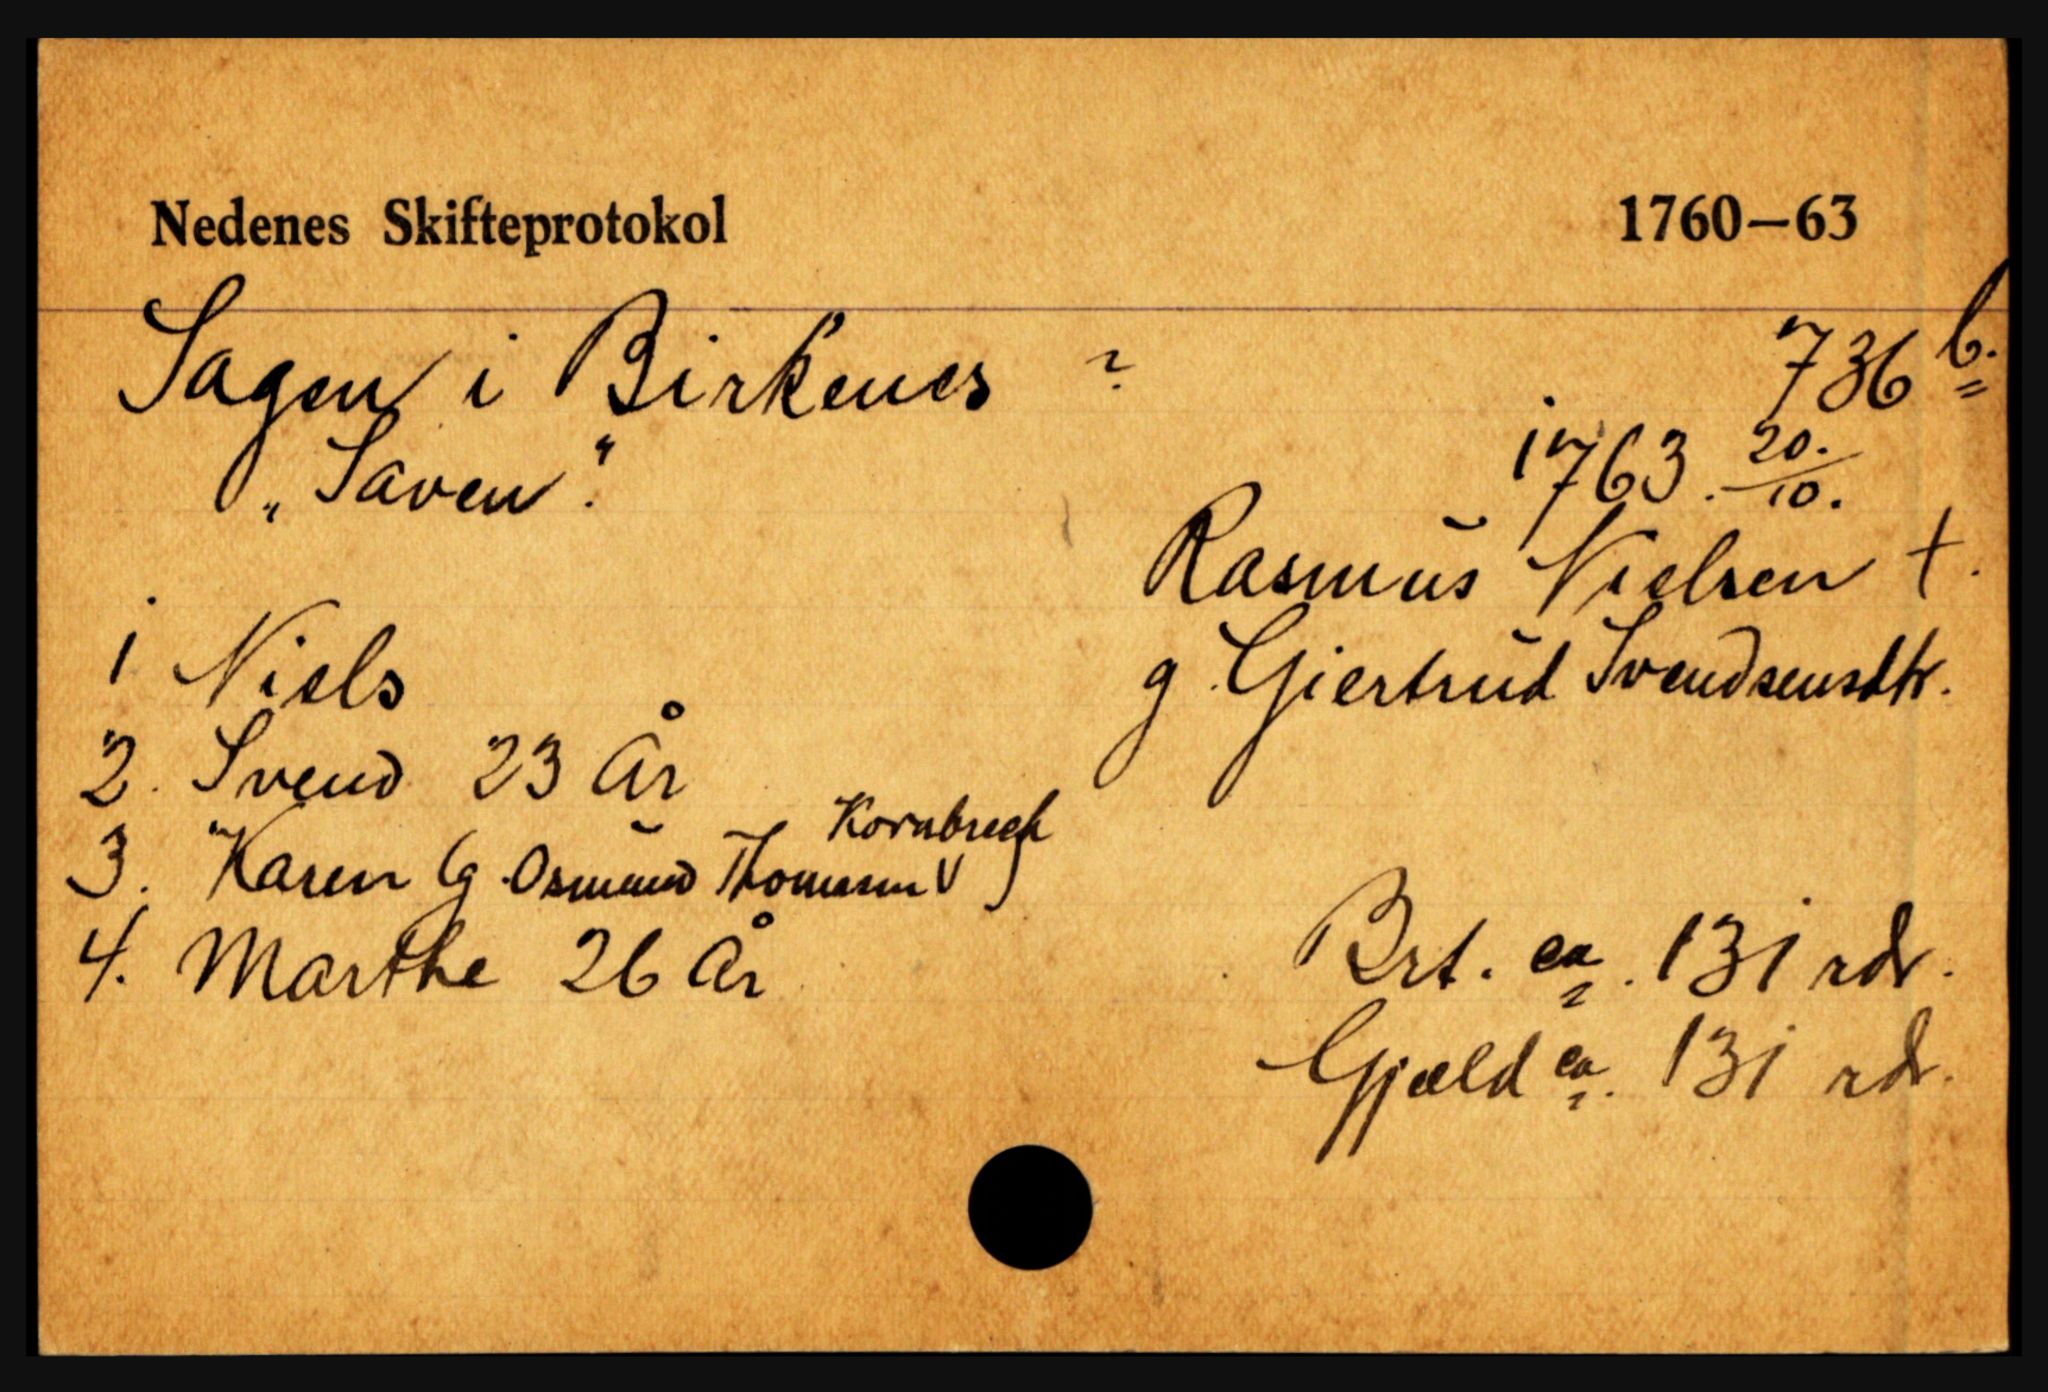 Nedenes Skifteprotokol 1760—63
Sagen i Birkenes ? 736 b.
„Saven". 1763. 20./10.
Rasmus Nielsen †.
1 Niels g. Gjertrud Svendsensdtr.
2. Svend 23 År
3. Karen (g. Osmund Thomesen V
4. Marthe 26 År
Brt. ca. 131 rdr.
Gjæld ca. 131 rdr.